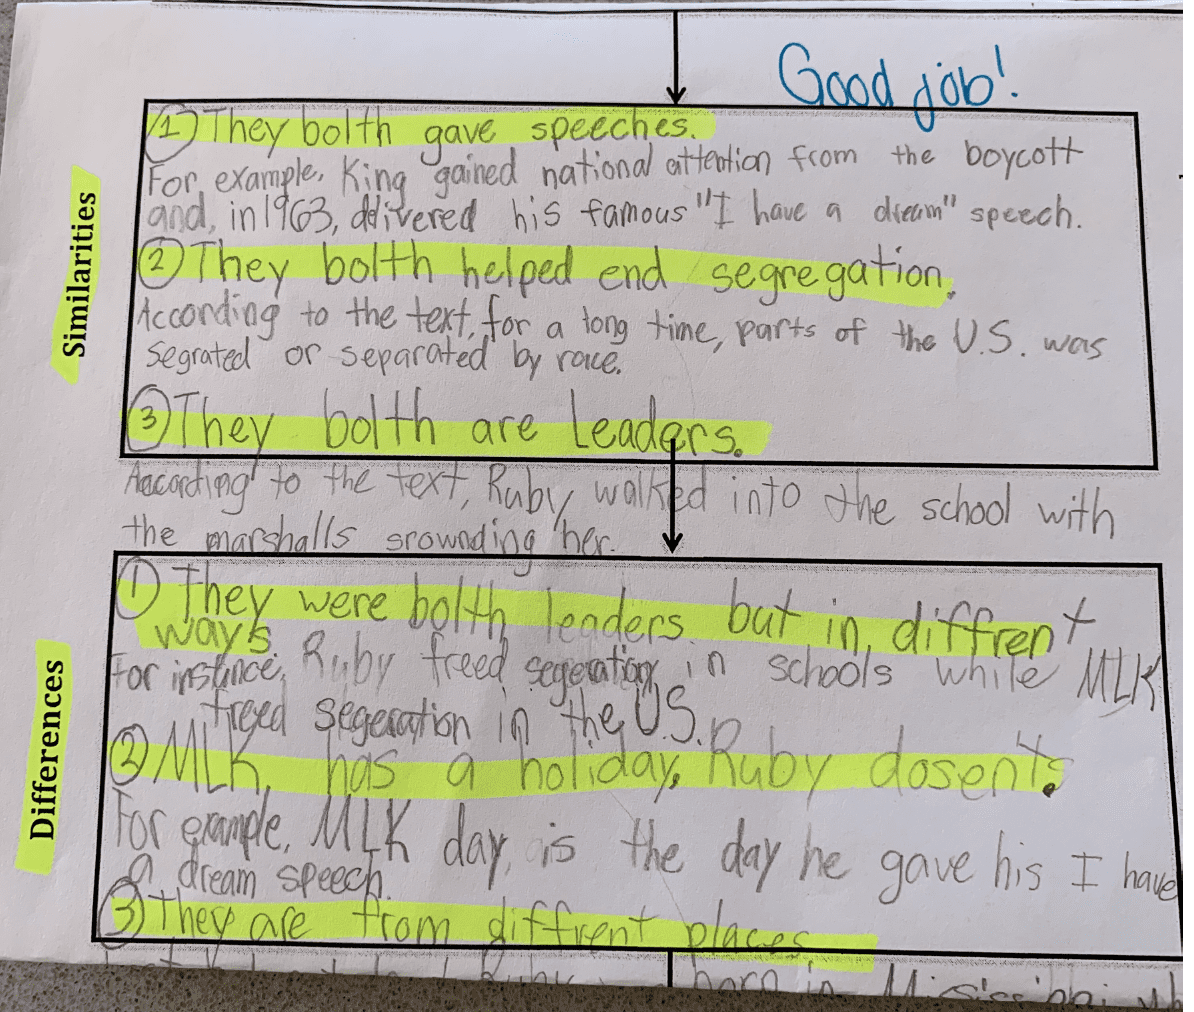 Good job!
Similarities
① They bolth gave speeches.
For example, King gained national attention from the boycott
and, in 1963, delivered his famous "I have a dream" speech.
② They bolth helped end segregation.
According to the text, for a long time, parts of the U.S. was
segrated or separated by race.
③ They bolth are Leaders.
According to the text, Ruby walked into the school with
the marshalls srownding her.
Differences
① They were bolth leaders but in diffrent
ways.
For instance, Ruby freed segeration in schools while MLK
freed segeration in the U.S.
② MLK has a holiday, Ruby dosent.
For example, MLK day, is the day he gave his I have
a dream speech.
③ They are from diffrent places
Ruby born in Mississippi